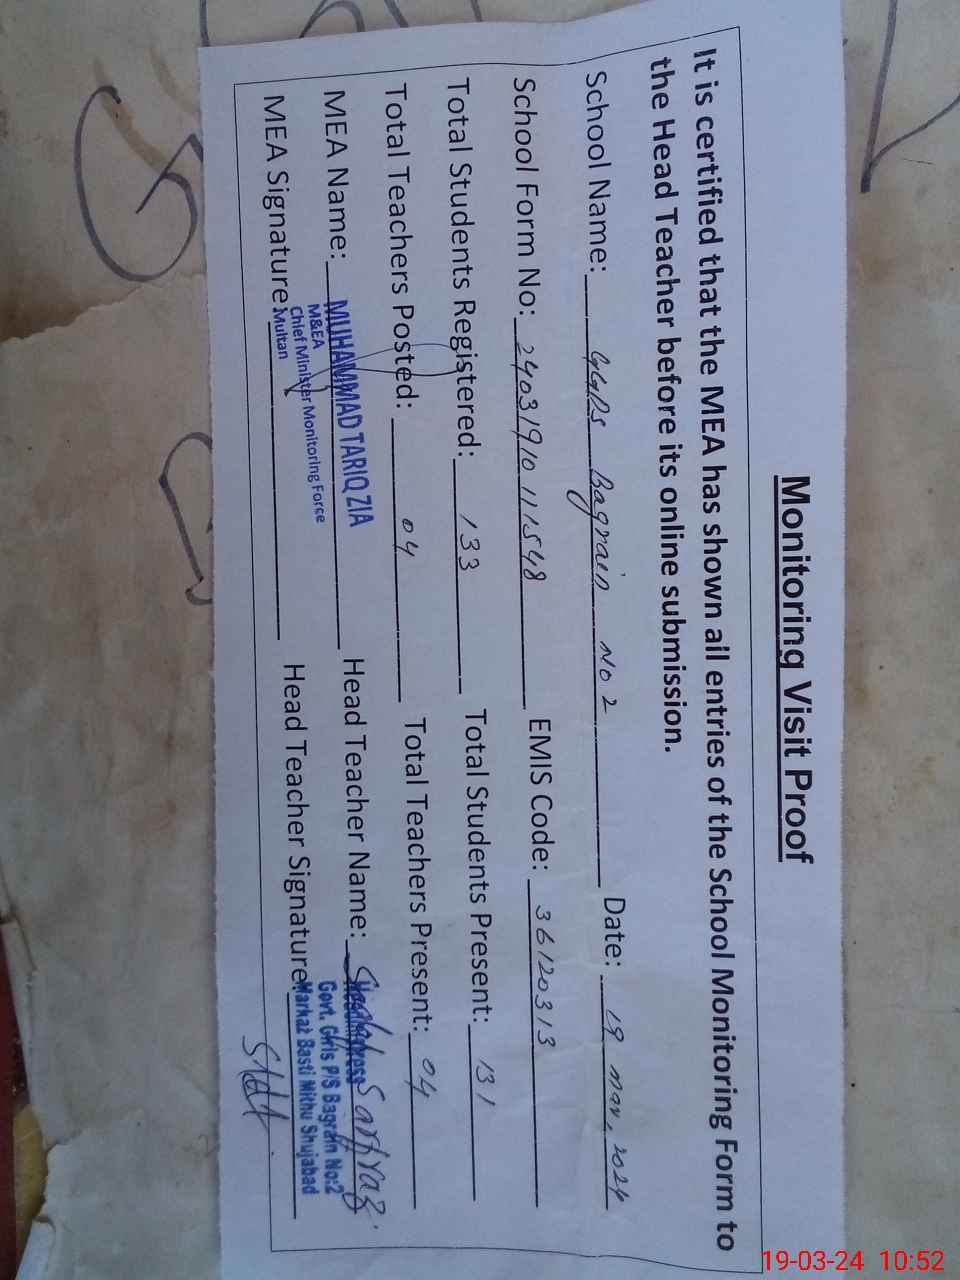 Monitoring Visit Proof
It is certified that the MEA has shown all entries of the School Monitoring Form to
the Head Teacher before its online submission.
School Name: GGPS Bagrain No 2 Date: 19 Mar, 2024
School Form No: 24031910111548 EMIS Code: 36120313
Total Students Registered: 133 Total Students Present: 131
Total Teachers Posted: 04 Total Teachers Present: 04
MEA Name: MUHAMMAD TARIQ ZIA Head Teacher Name: Sarfraz
M&EA
Chief Minister Monitoring Force
Multan
Headmistress
Govt. Girls P/S Bagrain No:2
Markaz Basti Mithu Shujabad
MEA Signature Head Teacher Signature
19-03-24 10:52